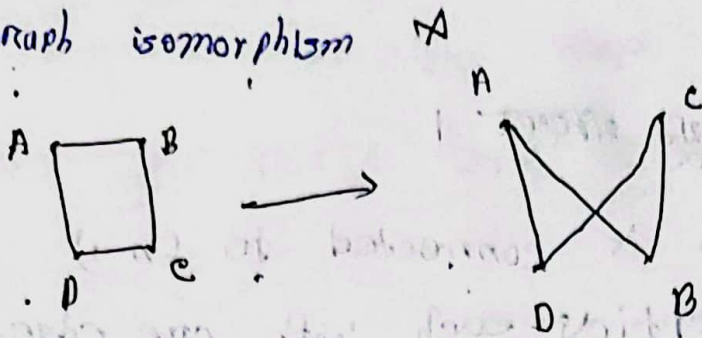 raph isomorphism
A B
D C
A C
D B